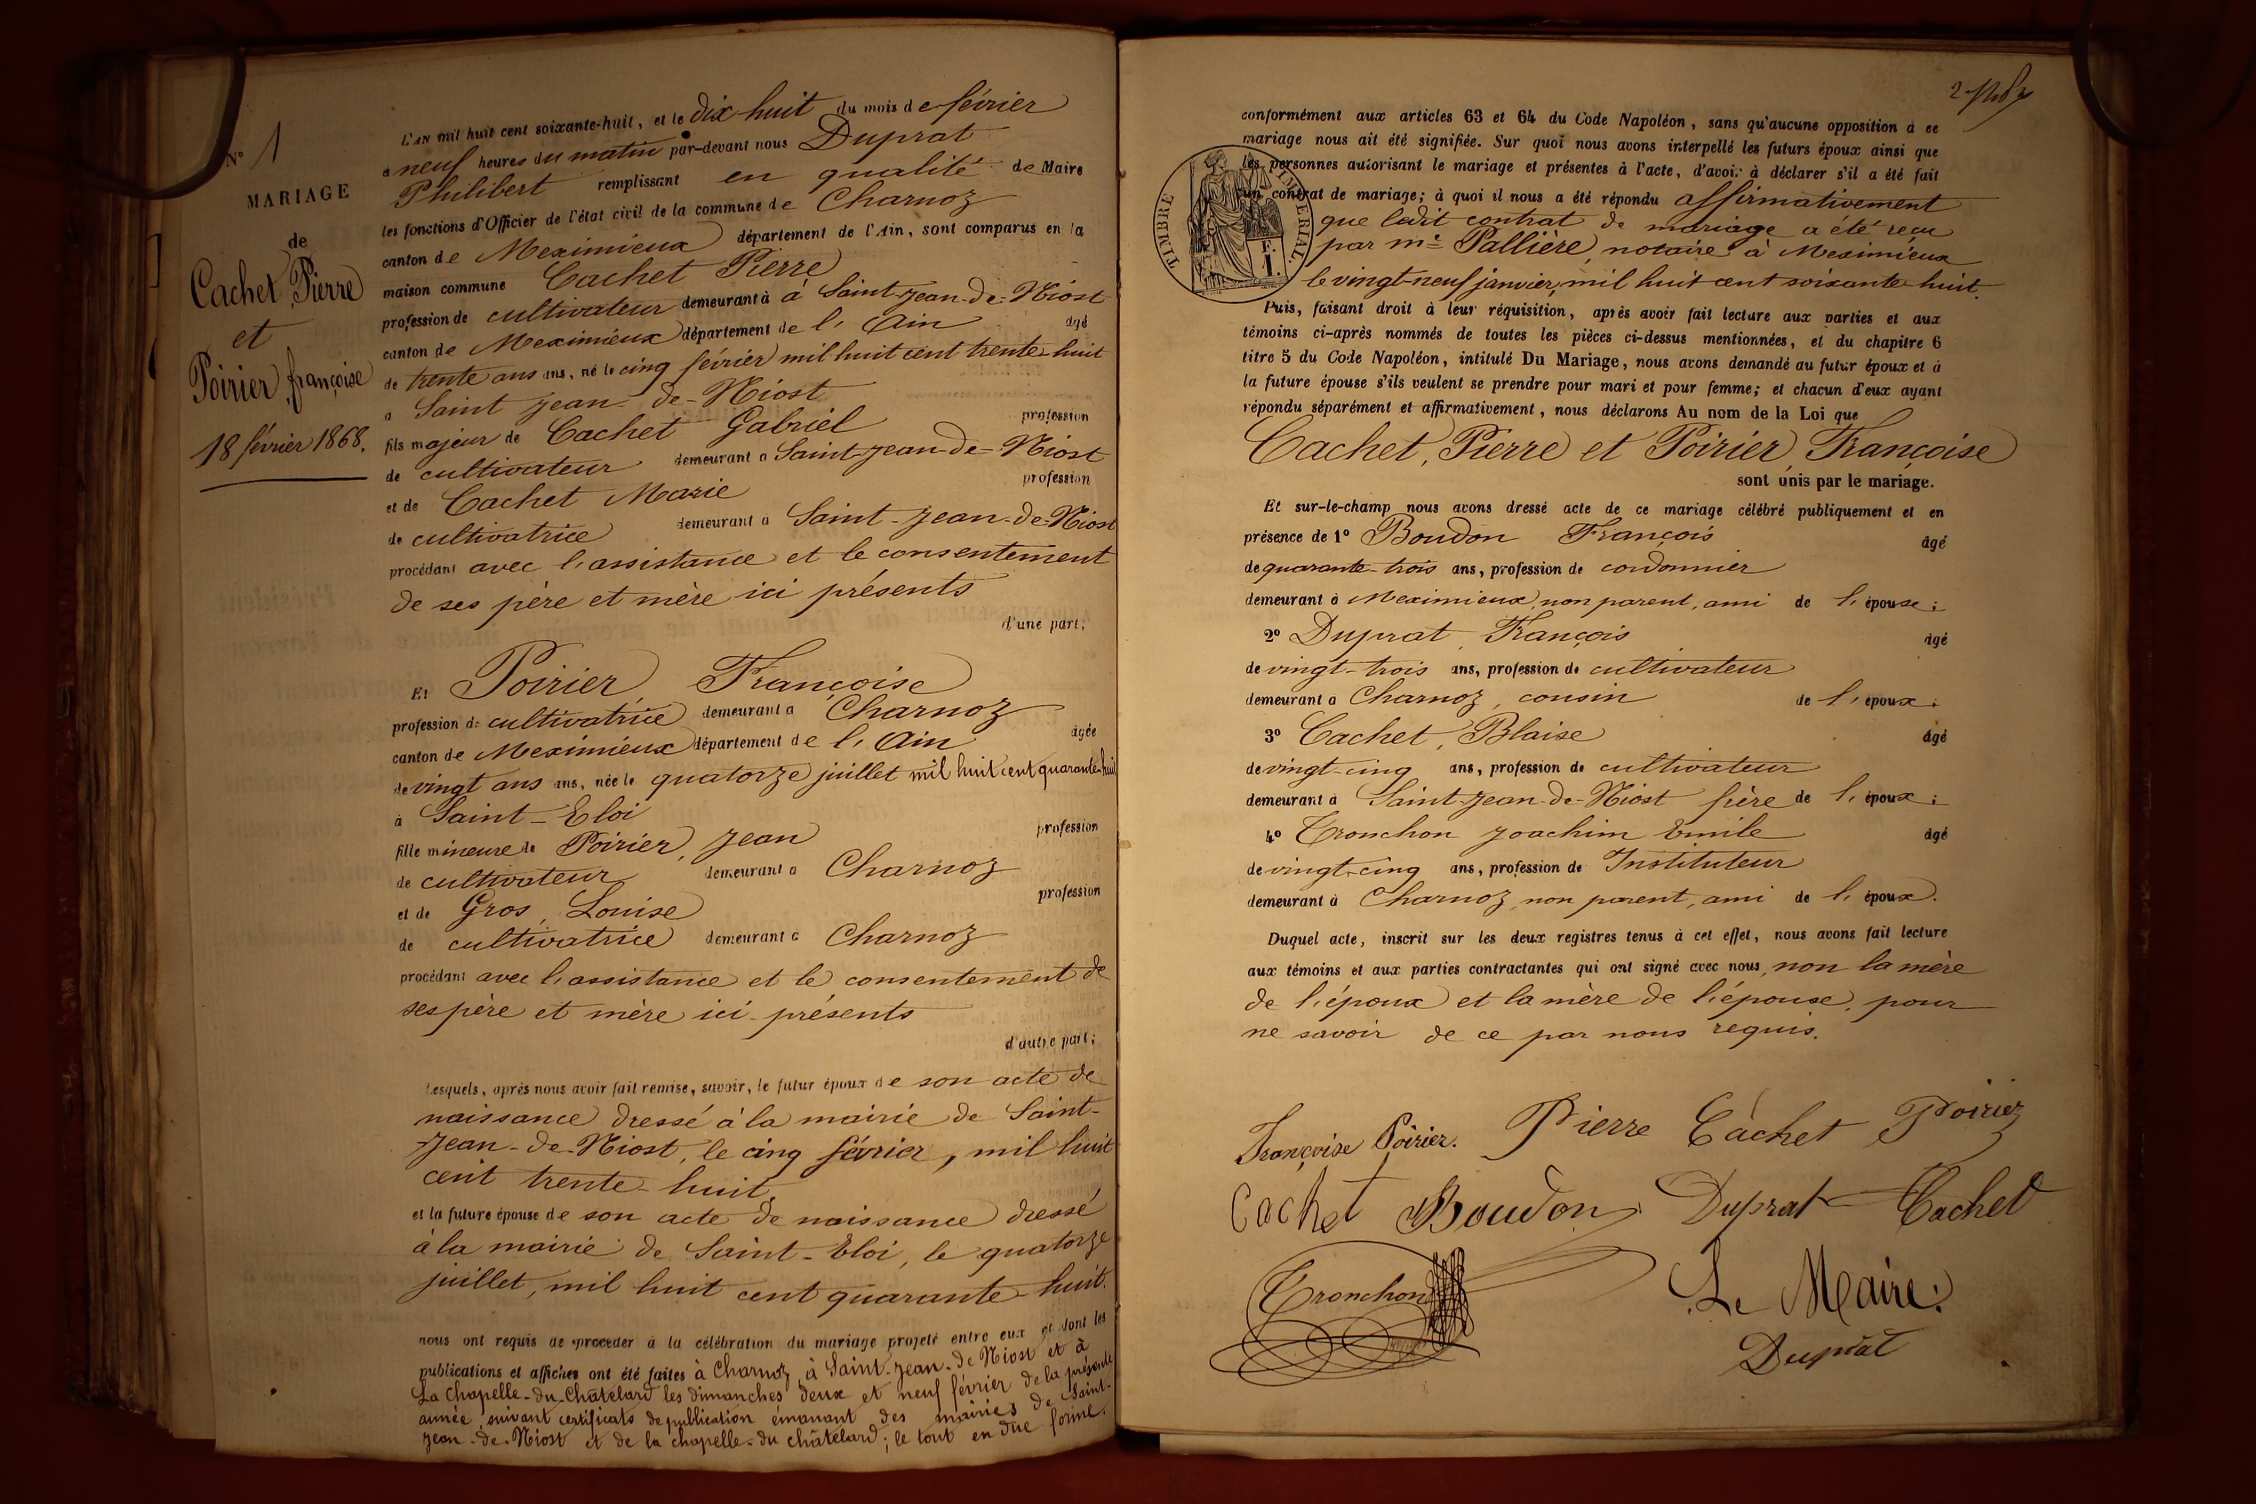 N° 1
MARIAGE
de
Cachet, Pierre
et
Poirier, françoise
18 février 1868.
L'AN mil huit cent soixante-huit, et le dix-huit du mois de février
à neuf heures du matin par-devant nous Duprat
Philibert remplissant en qualité de Maire
les fonctions d'Officier de l'état civil de la commune de Charnoz
canton de Meximieux département de l'Ain, sont comparus en la
maison commune Cachet Pierre
profession de cultivateur demeurant à à Saint-Jean-de-Niost
canton de Meximieux département de l'Ain âgé
de trente ans ans, né le cinq février mil huit cent trente-huit
à Saint Jean-de-Niost
fils majeur de Cachet Gabriel profession
de cultivateur demeurant à Saint-Jean-de-Niost
et de Cachet Marie profession
de cultivatrice demeurant à Saint-Jean-de-Niost
procédant avec l'assistance et le consentement
de ses père et mère ici présents
d'une part;
Et Poirier, Françoise
profession de cultivatrice demeurant à Charnoz
canton de Meximieux département de l'Ain âgée
de vingt ans ans, née le quatorze juillet mil huit cent quarante-huit
à Saint-Eloi
fille mineure de Poirier, Jean profession
de cultivateur demeurant à Charnoz
et de Gros, Louise profession
de cultivatrice demeurant à Charnoz
procédant avec l'assistance et le consentement de
ses père et mère ici présents
d'autre part;
Lesquels, après nous avoir fait remise, savoir, le futur époux de son acte de
naissance dressé à la mairie de Saint-
Jean-de-Niost, le cinq février, mil huit
cent trente-huit,
et la future épouse de son acte de naissance dressé
à la mairie de Saint-Eloi, le quatorze
juillet, mil huit cent quarante-huit.
nous ont requis de procéder à la célébration du mariage projeté entre eux et dont les
publications et affiches ont été faites à Charnoz, à Saint-Jean-de-Niost et à
La Chapelle-du-Châtelard les dimanches deux et neuf février de la présente
année, suivant certificats de publication émanant des mairies de Saint-
Jean-de-Niost et de la chapelle-du châtelard; le tout en due forme.
conformément aux articles 63 et 64 du Code Napoléon, sans qu'aucune opposition à ce
mariage nous ait été signifiée. Sur quoi nous avons interpellé les futurs époux ainsi que
les personnes autorisant le mariage et présentes à l'acte, d'avoir à déclarer s'il a été fait
un contrat de mariage; à quoi il nous a été répondu affirmativement
que ledit contrat de mariage a été reçu
par me Pallière, notaire à Meximieux
le vingt-neuf janvier, mil huit cent soixante-huit.
TIMBRE IMPÉRIAL.
E.
1.
Puis, faisant droit à leur réquisition, après avoir fait lecture aux parties et aux
témoins ci-après nommés de toutes les pièces ci-dessus mentionnées, et du chapitre 6
titre 5 du Code Napoléon, intitulé Du Mariage, nous avons demandé au futur époux et à
la future épouse s'ils veulent se prendre pour mari et pour femme; et chacun d'eux ayant
répondu séparément et affirmativement, nous déclarons Au nom de la Loi que
Cachet, Pierre et Poirier, Françoise
sont unis par le mariage.
Et sur-le-champ nous avons dressé acte de ce mariage célébré publiquement et en
présence de 1° Boudon François âgé
de quarante-trois ans, profession de cordonnier
demeurant à Meximieux, non parent, ami de l'épouse;
2° Duprat, François âgé
de vingt-trois ans, profession de cultivateur
demeurant à Charnoz, cousin de l'époux;
3° Cachet, Blaise âgé
de vingt-cinq ans, profession de cultivateur
demeurant à Saint-Jean-de-Niost frère de l'époux;
4° Tronchon Joachim Emile âgé
de vingt-cinq ans, profession de Instituteur
demeurant à Charnoz, non parent, ami de l'époux.
Duquel acte, inscrit sur les deux registres tenus à cet effet, nous avons fait lecture
aux témoins et aux parties contractantes qui ont signé avec nous, non la mère
de l'époux et la mère de l'épouse, pour
ne savoir de ce par nous requis.
Françoise Poirier. Pierre Cachet Poirier
Cachet Boudon Duprat Cachet
Tronchon
Le Maire:
Duprat